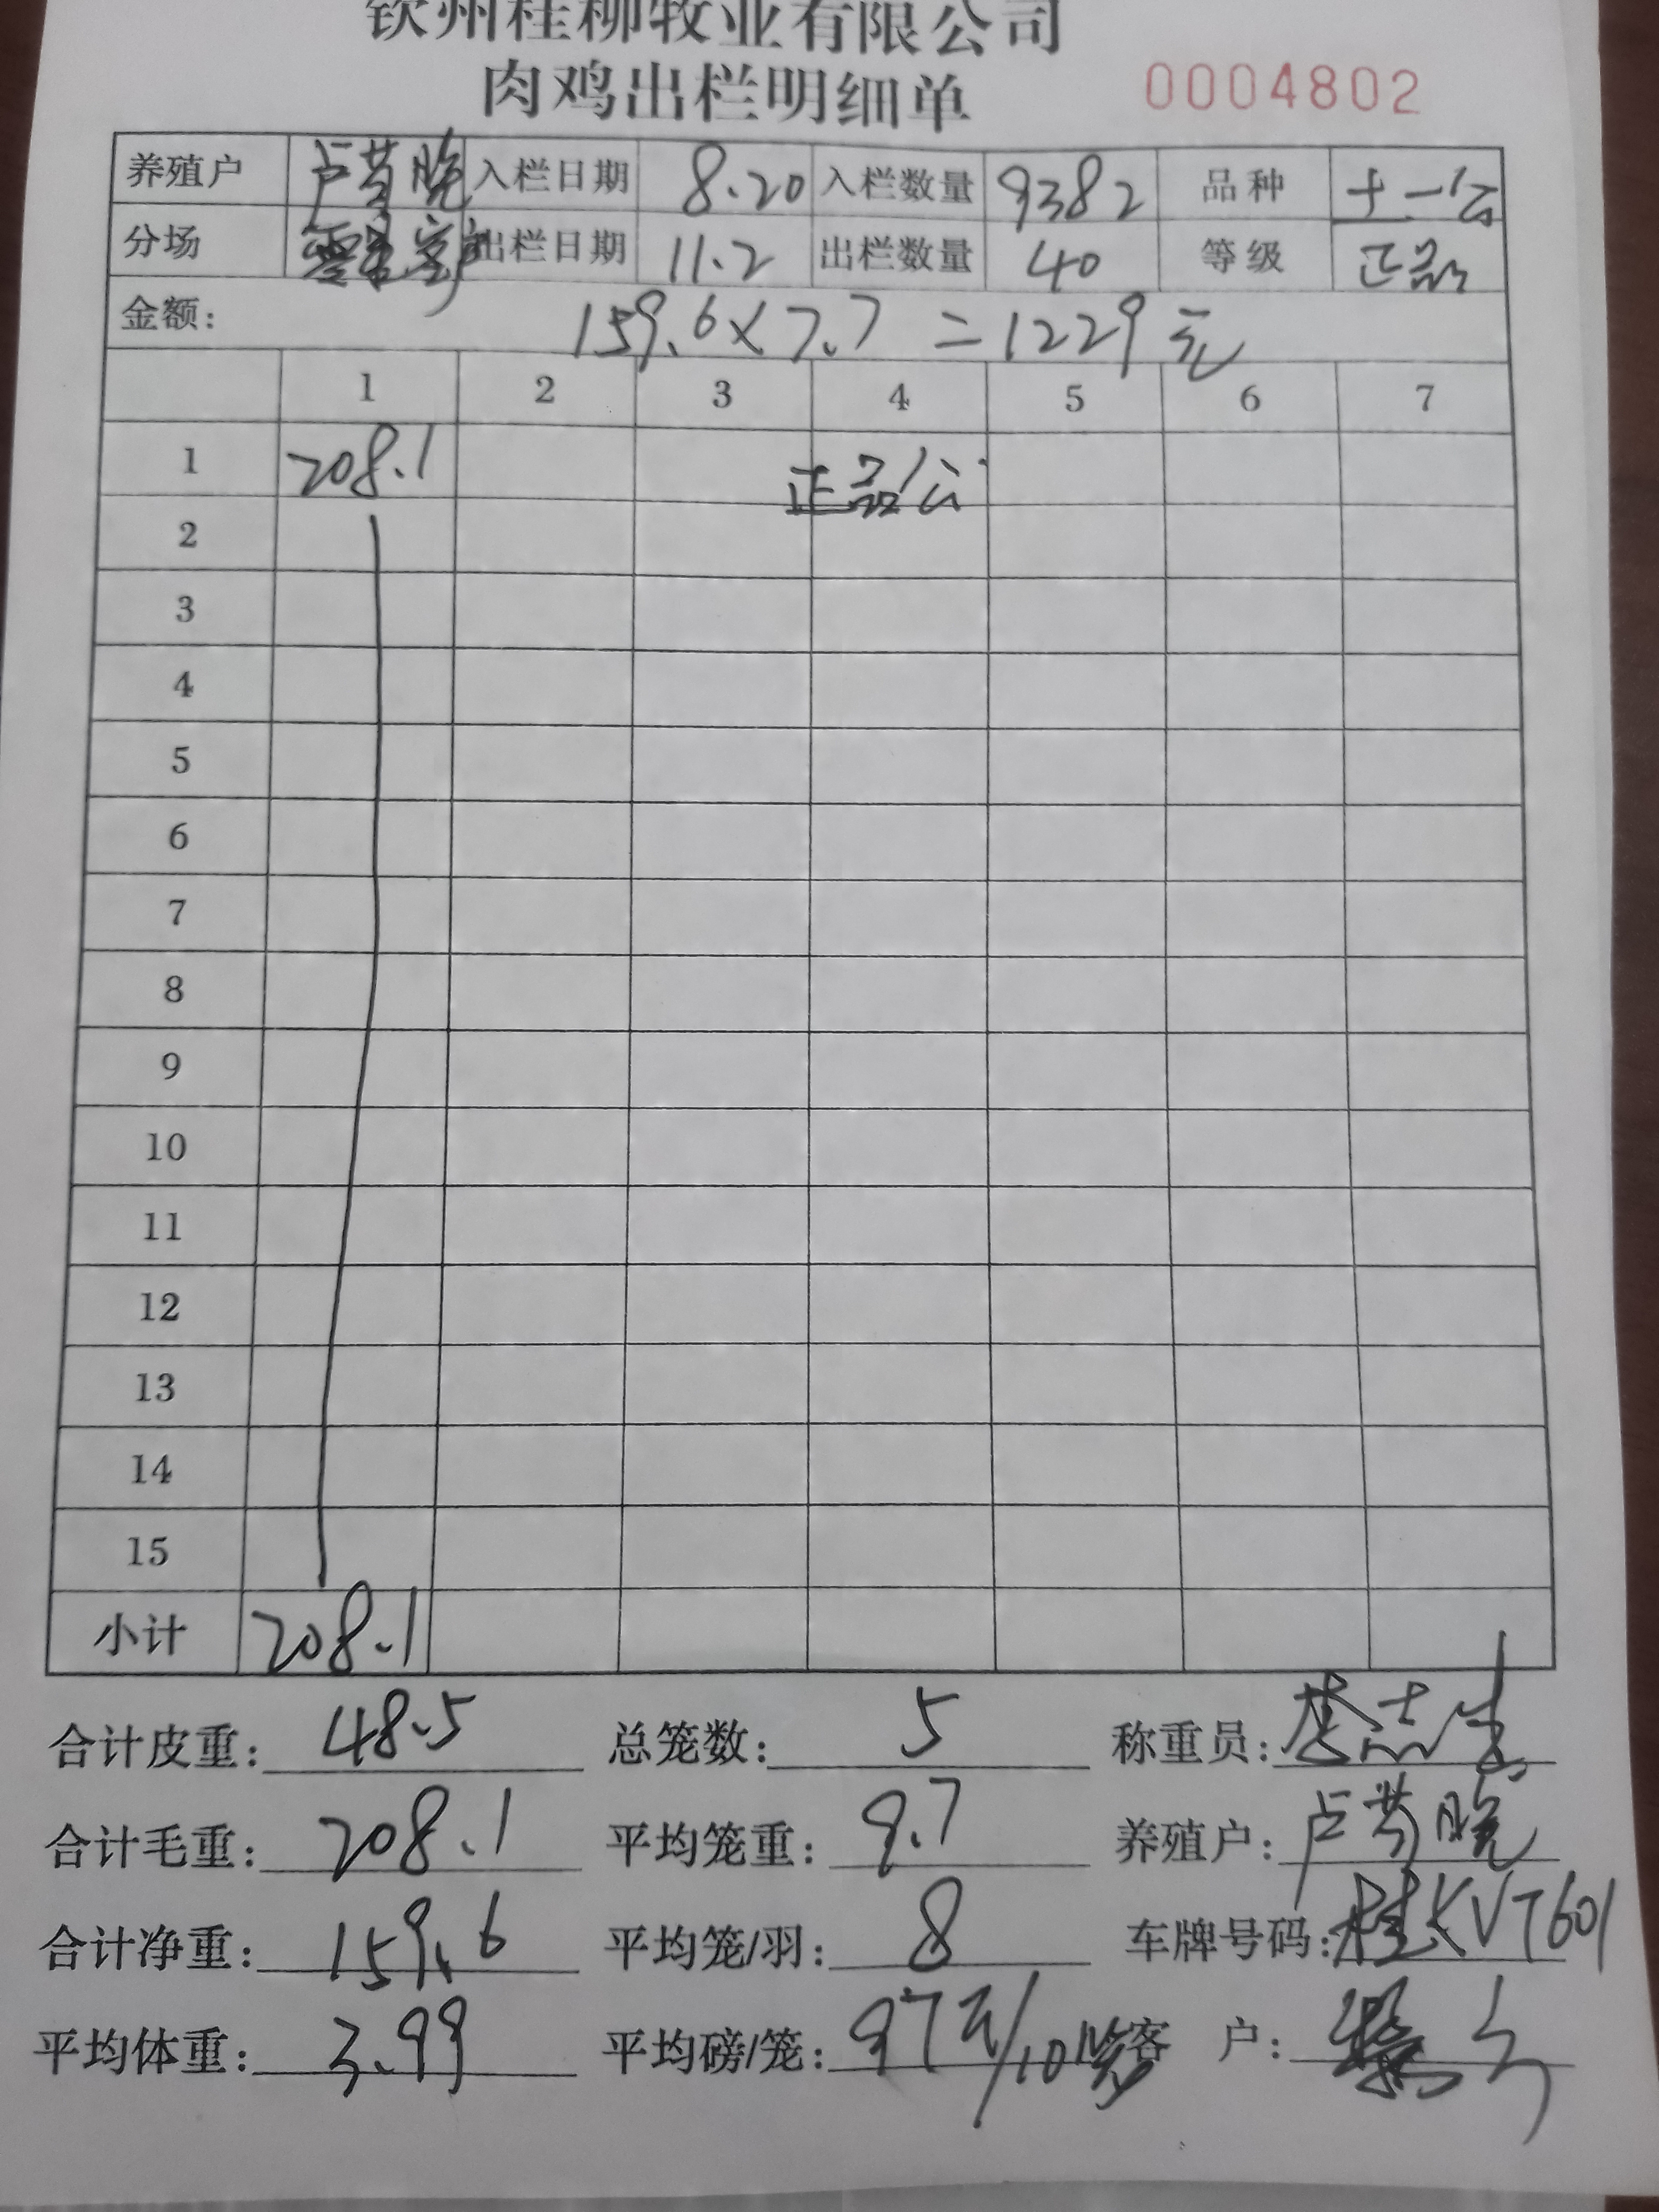 钦州桂柳牧业有限公司
肉鸡出栏明细单 0004802
养殖户 卢芳晓 入栏日期 8.20 入栏数量 9382 品种 土一公
分场 出栏日期 11.2 出栏数量 40 等级 正品
金额: 159.6×7.7=1229元
1 2 3 4 5 6 7
1 208.1 正品公
2
3
4
5
6
7
8
9
10
11
12
13
14
15
小计 208.1
合计皮重: 48.5 总笼数: 5 称重员:
合计毛重: 208.1 平均笼重: 9.7 养殖户: 卢芳晓
合计净重: 159.6 平均笼/羽: 8 车牌号码: 桂KVT601
平均体重: 3.99 平均磅/笼: 97斤/10 客 户: